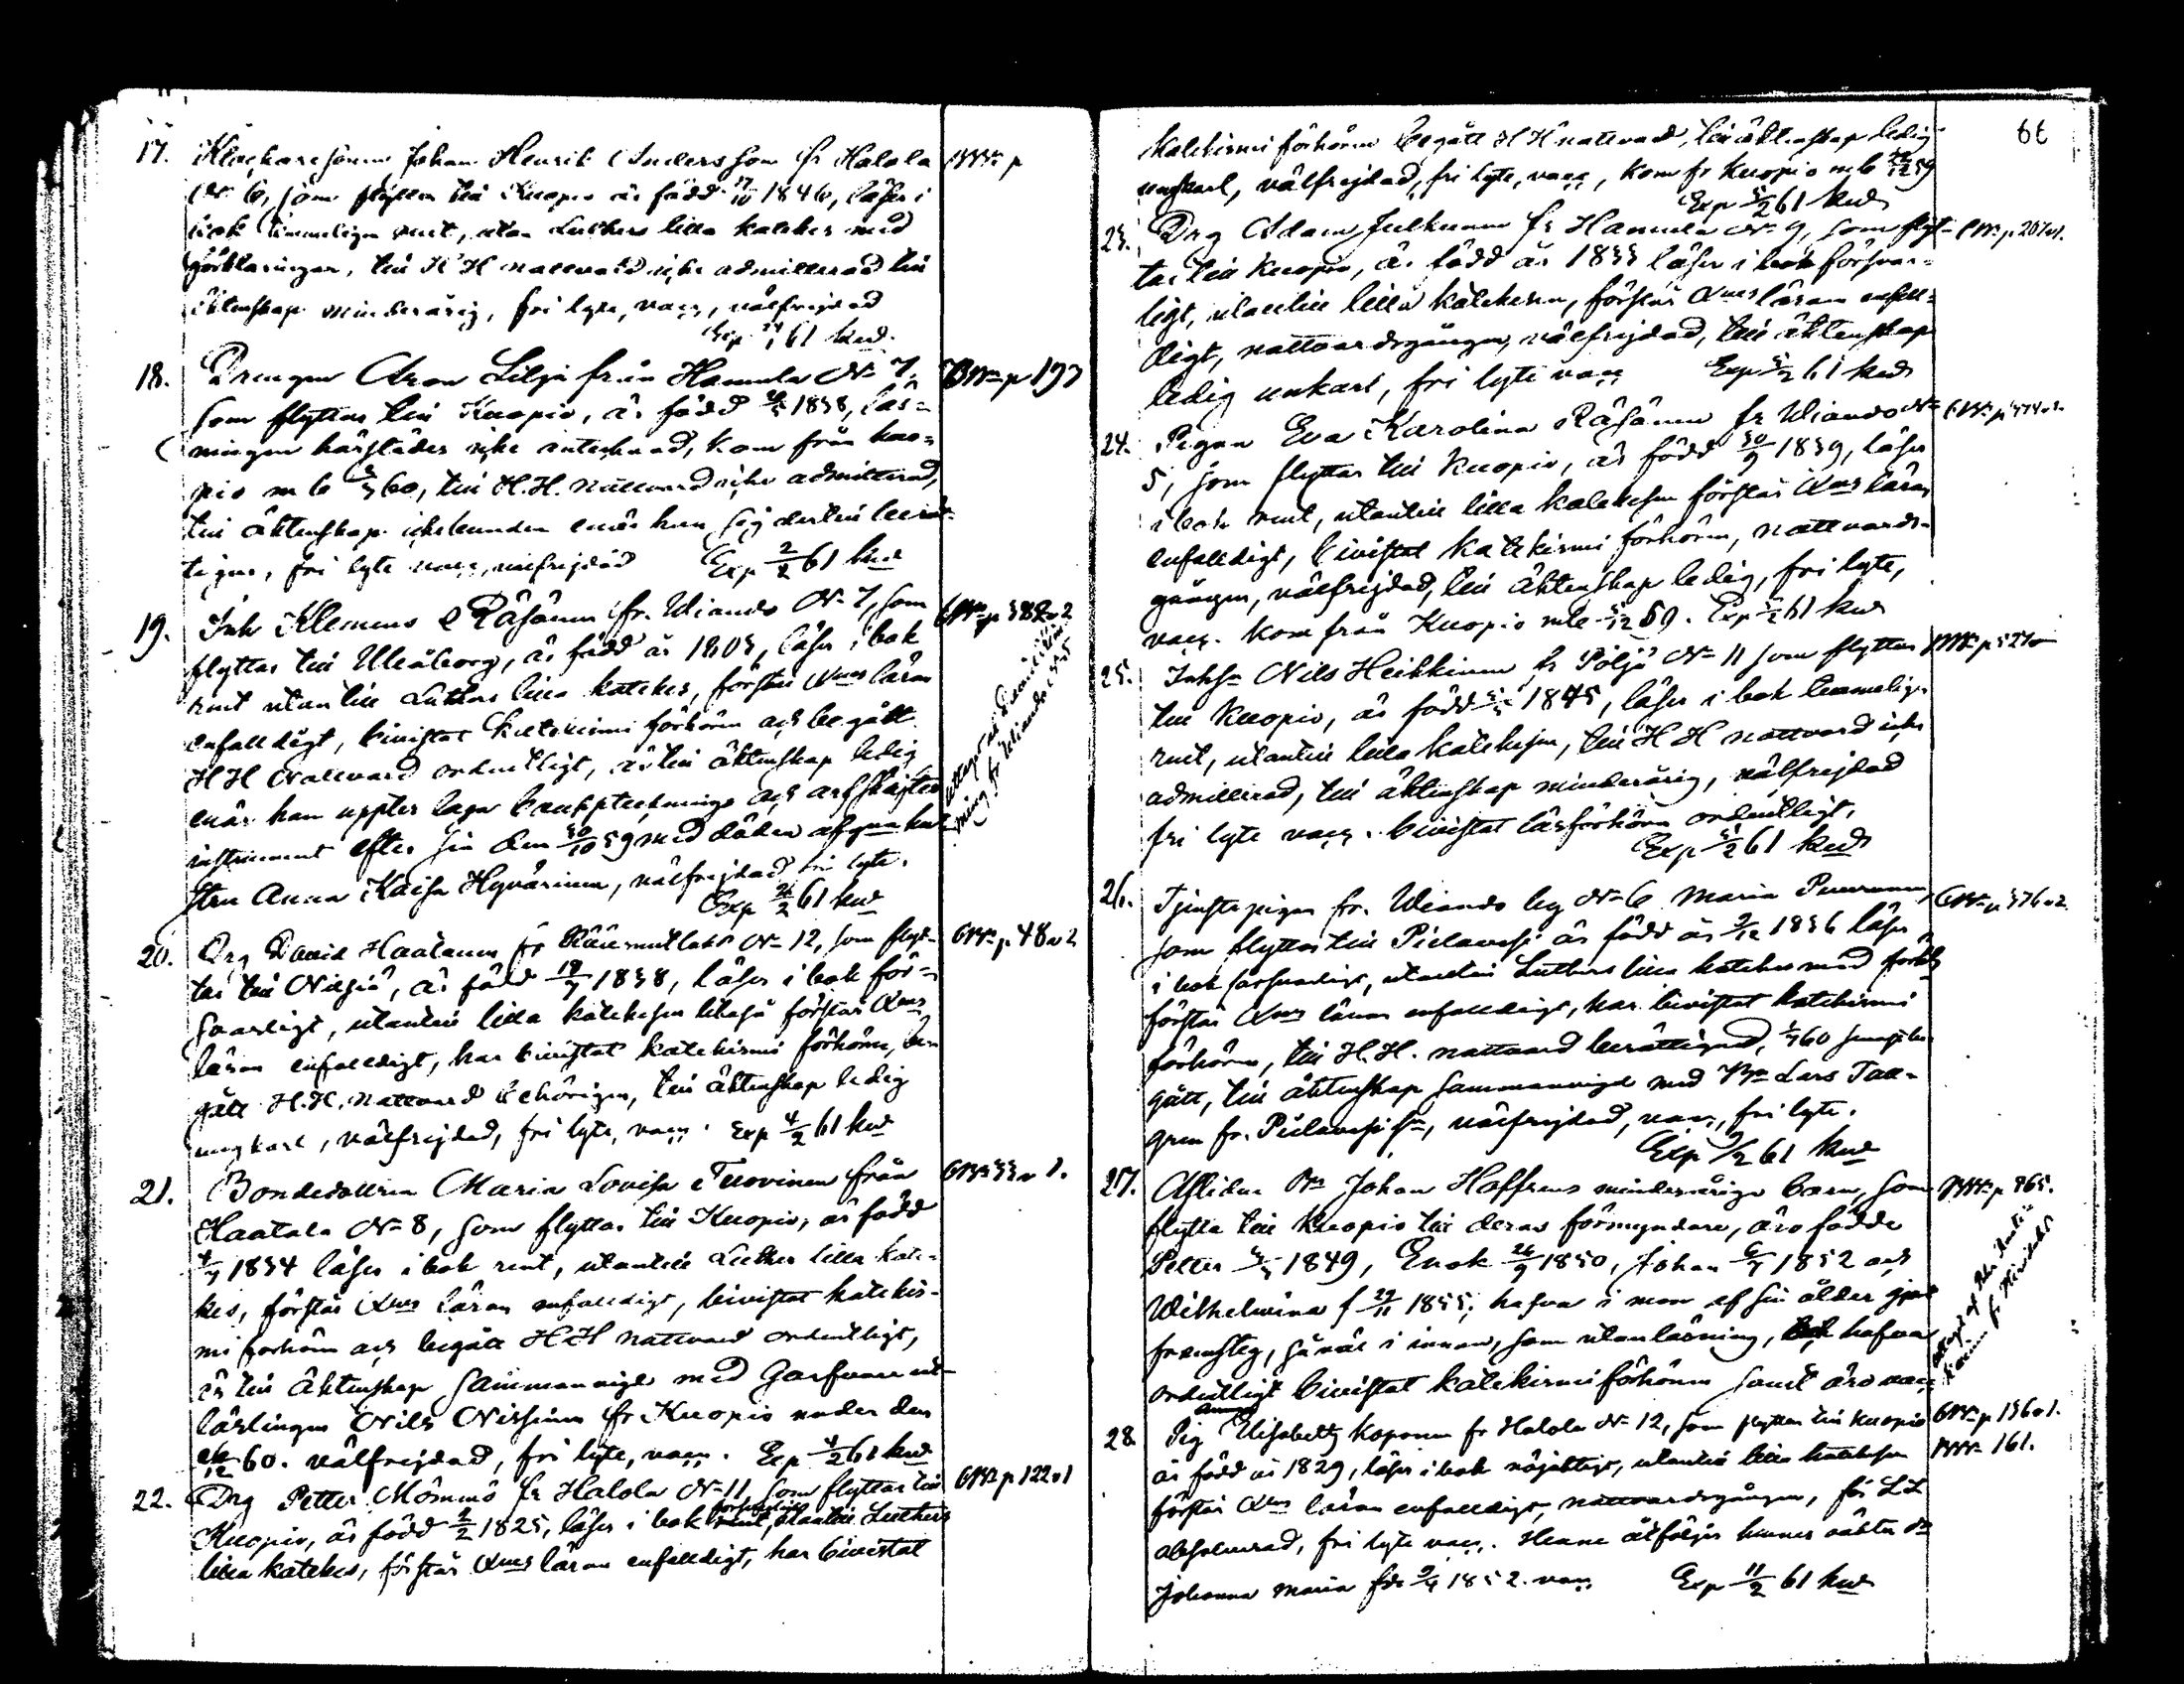 17. Klockaresonen Johan Henrik Andersson fr Halola
N 6, som flyttar till Kuopio är född 17/10 1846, läser i
bok temmeligen rent, utan Luthers lilla kateches med
förklaringar, till H H nattvard icke admitterad till
äktenskap minderårig, fri lyte, vacc, välfrejdad
Exp 24/1 61 kwd.
18. Drengen Aron Lilja från Hamula N 7. p 197
som flyttar till Kuopio, är född 1838, läs=
ningen härstädes icke antecknad, kom från kuo=
pio m b 60, till H.H. nattvard icke admitterad,
till äktenskap icke bunden enär han sig dertill berät=
tigar, fri lyte vacc, välfrejdad Exp 2/2 61 kwd
19. Inh Klemens Räsänen fr. Wiando N 7, som p 382 v 2
flyttar till Uleåborg, är född år 1803, läser i bok
rent utan till Luthers lilla kateches, förstår Xnds läran
enfalldigt, bivistat Katekismi förhören och begått
H H Nattvard ordentligt, är till äktenskap ledig
enär han uppter laga bouppteckninge och arfskiftes
instrument efter sin den 30/10 59 med döden afgna hu=
stru Anna Kaisa Hyvärinen, välfrejdad fri lyte.
Exp 2/2 61 kwd
20. Drg David Haatanen fr N 12, som flyt= p 48 v 2
tar till Nilsiä, är född 19/7 1838, läser i bok för=
svarligt, utantill lilla katekesen likaså förstår Xnds
läran enfalldigt, har bivistat katekismi förhören, be=
gått H.H. nattvard behörigen, till äktenskap ledig
ungkarl, välfrejdad, fri lyte, vacc. Exp 4/2 61 kwd
21. Bondedottren Maria Lovisa Tuovinen från
Haatala N 8, som flyttar till Kuopio, är född
1834 läser i bok rent, utantill Luther lilla kate=
kes, förstår Xnds läran enfalldigt, bivistat katekis=
mi förhören och begått H H nattvard ordentligt,
är till äktenskap sammanvigd med Garfvare ut=
lärlingen Nils Nissinen fr Kuopio under den
12 60. välfrejdad, fri lyte, vacc. Exp 4/2 61 kwd
22. Drg Petter Mömmö fr Halola N 11, som flyttar till p 122 v 1
Kuopio, är född 2/2 1825, läser i bok försvarligt, utantill Luthers
lilla katekes, förstår Xnds läran enfalldigt, har bivistat
66
katekismi förhören begått H H nattvard, till äktenskap ledig
ungkarl, välfrejdad, fri lyte, vacc, kom fr Kuopio m b 59
Exp 5/2 61 kwd
23. Drg Adam Julkunen fr Hamula N 9, som flyt= p. 207 v 1.
tar till Kuopio, är född år 1833 läser i bok försvar=
ligt, utantill lilla katekesen, förstår Xnds läran enfall=
digt, nattvardsgången, välfrejdad, till äktenskap
ledig unkarl, fri lyte vacc Exp 5/2 61 kwd
24. Pigan Eva Karolina Räsänen fr Wiando N
5, som flyttar till Kuopio, är född 30/9 1839, läser
i bok rent, utantill lilla katekesen förstår Xnds läran
enfalldigt, bivistat katekismi förhören, nattvards=
gången, välfrejdad, till äktenskap ledig, fri lyte,
vacc. kom från Kuopio mb 12 59. Exp 5/2 61 kwd
25. Inhs Nils Heikkinen fr Pöljä N 11 som flyttar
till Kuopio, är född 1845, läser i bok temmeligen
rent, utantill lilla katekesen, till H H nattvard icke
admitterad, till äktenskap minderårig, välfrejdad
fri lyte vacc. bivistat läsförhören ordentligt.
Exp 5/2 61 kwd
26. Tjenstepigan fr. Wiando by N 6 Maria Puurunen, p 376 v 2.
som flyttar till Pielavesi är född år 9/12 1836 läser
i bok försvarligt, utantill Luthers lilla katekes med förkl
förstår Xnds läran enfalldigt, har bivistat katekismi
förhören, till H.H. nattvard berättigad, 60 senast be
gått, till äktenskap sammanvigd med Lars
gren fr. Pielavesi, välfrejdad, vacc, fri lyte.
Exp 9/2 61 kwd
27. Aflidne Johan Hoffrens minderårige barn, som p 865.
flytta till Kuopio till deras förmyndare, äro födde
Petter 1849, Enok 26/9 1850, Johan 1852 och
Wilhelmina f 27/11 1855, hafva i mon af sin ålder gjort
framsteg, så väl i innan, som utanläsning, hafva
ordentligt bivistat katekismiförhören samt äro vacc
28. Pig Anna Elisabeth Koponen fr Halola N 12, som flyttar till Kuopio p 136 v 1.
är född år 1829, läser i bok nöjaktigt, utantill lilla katekesen 161.
förstår Xnds läran enfalldigt, nattvardsgången, för LL
absolverad, fri lyte vacc. Henne åtföljer hennes oäkta dr
Johanna Maria född 9/4 1852. vacc Exp 11/2 61 kwd